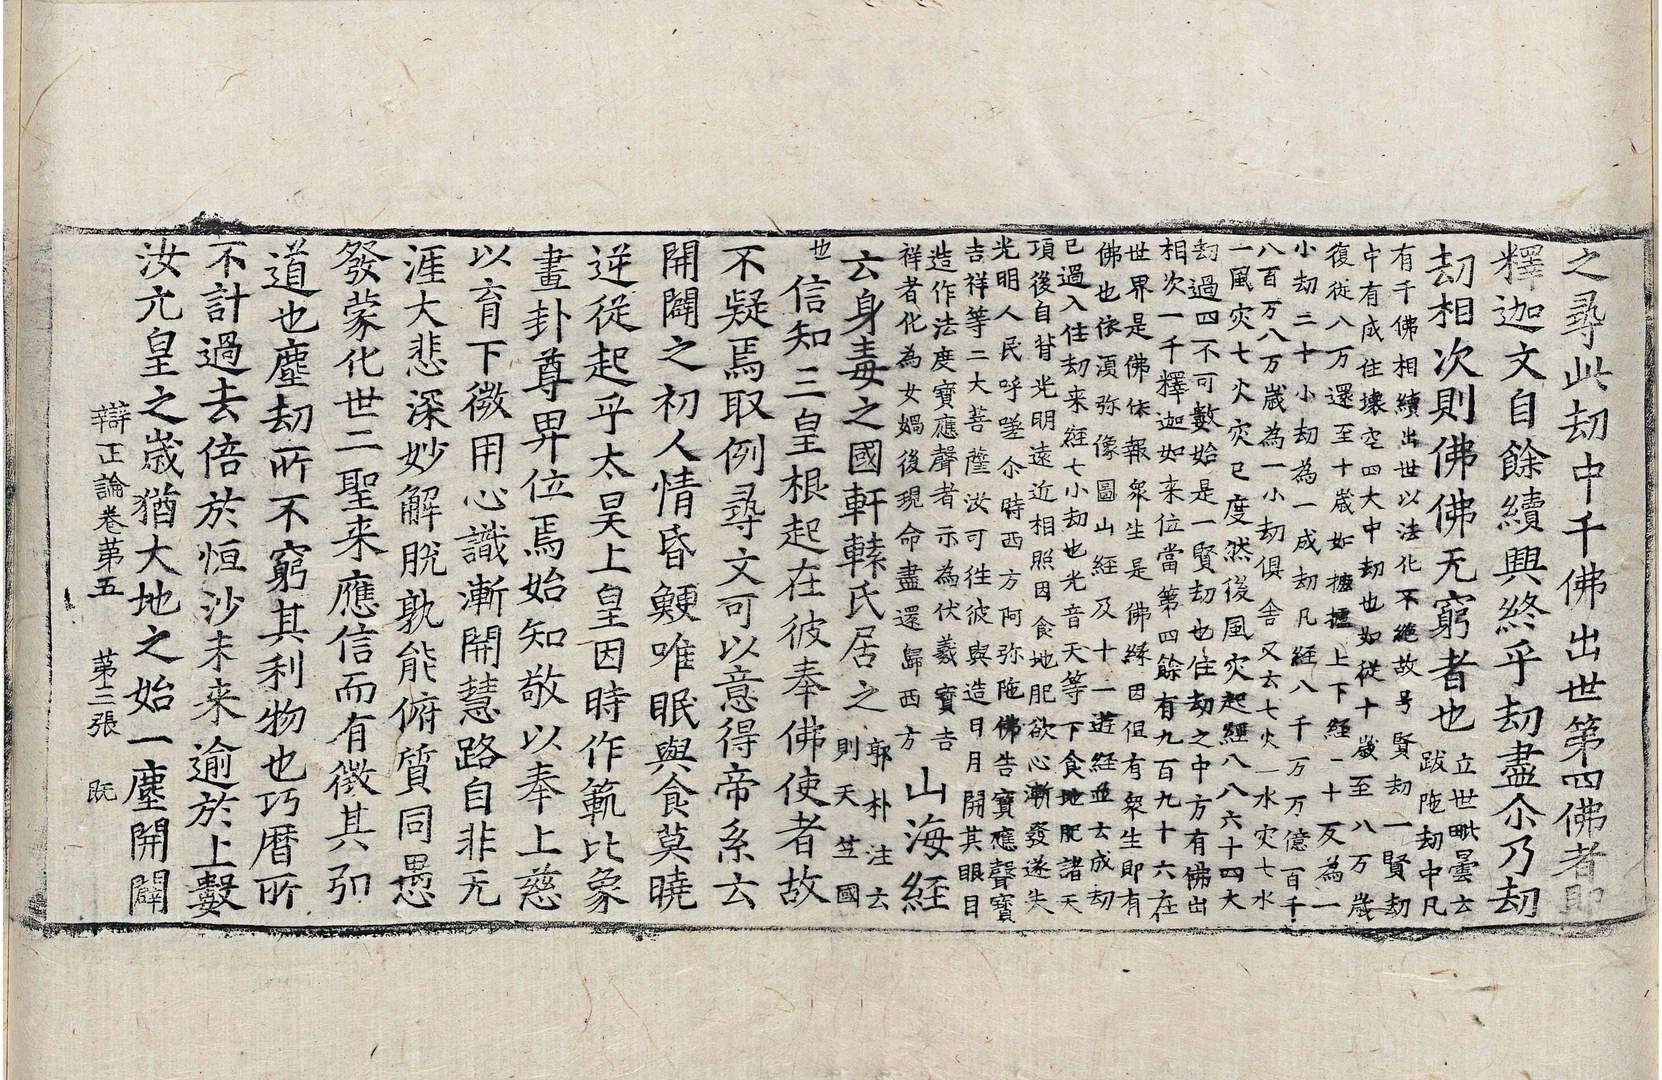 之尋此劫中千佛出世第四佛者即
釋迦文自餘續興終乎劫盡尒乃劫
劫相次則佛佛无窮者也
立世毗曇云
跋陁劫中凡
有千佛相續出世以法化不絶故号賢劫一賢劫
中有成住壞空四大中劫也如從十歲至八万歲
復從八万還至十歲如轆轤上下經二十反為一
小劫二十小劫為一成劫凡經八千万万億百千
八百万八万歲為一小劫俱舍又云七火一水灾七水
一風灾七火灾已度然後風灾起經八八六十四大
劫過四不可數始是一賢劫也住劫之中方有佛出
相次一千釋迦如来位當第四餘有九百九十六在
世界是佛依報衆生是佛縁因但有衆生即有
佛也依湏弥像圖山經及十一遊經並云成劫
已過入住劫来經七小劫也光音天等下食地肥諸天
項後自背光明遠近相照因食地肥欲心漸發遂失
光明人民呼嗟尒時西方阿弥陁佛告寶應聲寶
吉祥等二大菩薩汝可往彼與造日月開其眼目
造作法度寶應聲者示為伏羲寶吉
祥者化為女媧後現命盡還歸西方
山海経
云身毒之國軒轅氏居之
郭朴注云
則天笁國
也
信知三皇根起在彼奉佛使者故
不疑焉取例尋文可以意得帝系云
開闢之初人情昏鯁唯眠與食莫曉
逆從起乎太昊上皇因時作範比象
畫卦尊畀位焉始知敬以奉上慈
以育下微用心識漸開慧路自非无
涯大悲深妙解脫孰能俯質同愚
發蒙化世二聖来應信而有徵其引
道也塵劫所不窮其利物也巧曆所
不計過去倍於恒沙未来逾於上數
汝允皇之歲猶大地之始一塵開闢
辯正論卷苐五　苐三張　既